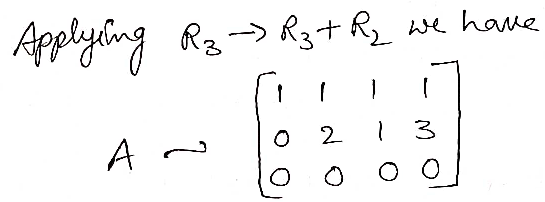 Applying R3 → R3 + R2 we have
A ~ [1 1 1 1
0 2 1 3
0 0 0 0]